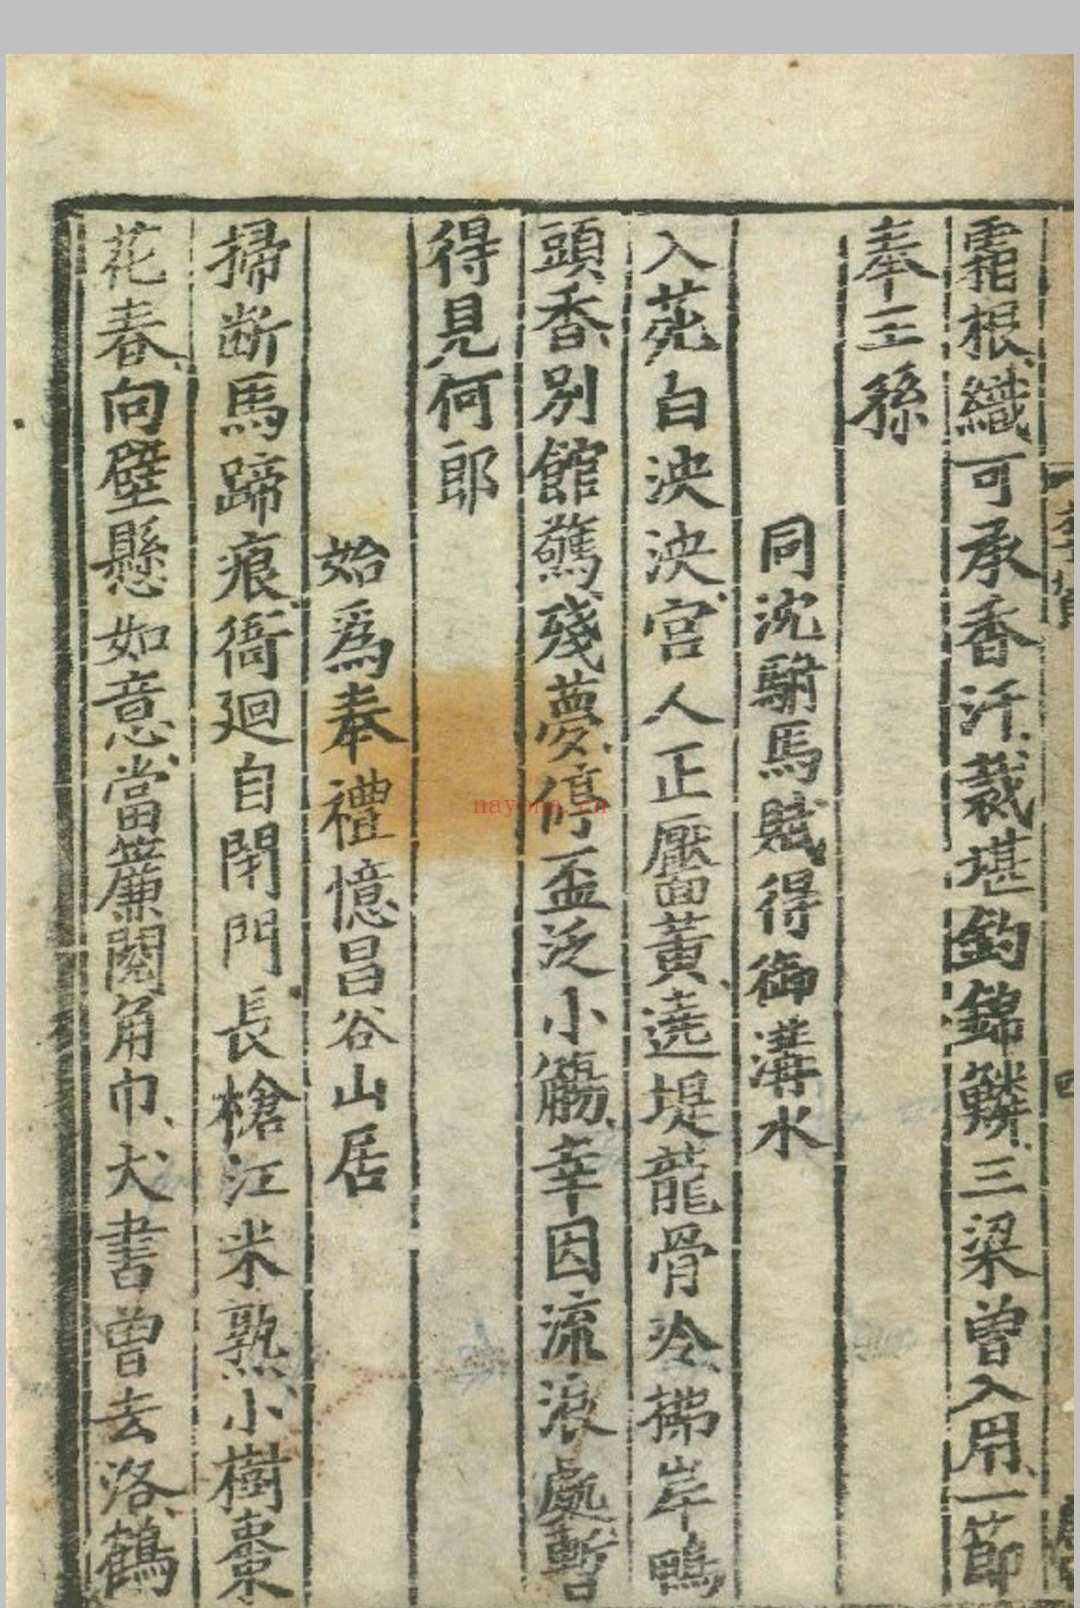 霜根織可承香汗裁堪釣錦鱗三梁曾入用一節
奉王孫
同沈駙馬賦得御溝水
入苑白泱泱宮人正靨黃遶堤龍骨冷拂岸鴨
頭香別館驚殘夢停盃泛小觴幸因流浪處暫
得見何郎
始為奉禮憶昌谷山居
掃断馬蹄痕衙廻自閉門長槍江米熟小樹棗
花春向壁懸如意當簾閱角巾犬書曾去洛鶴
nayona.cn